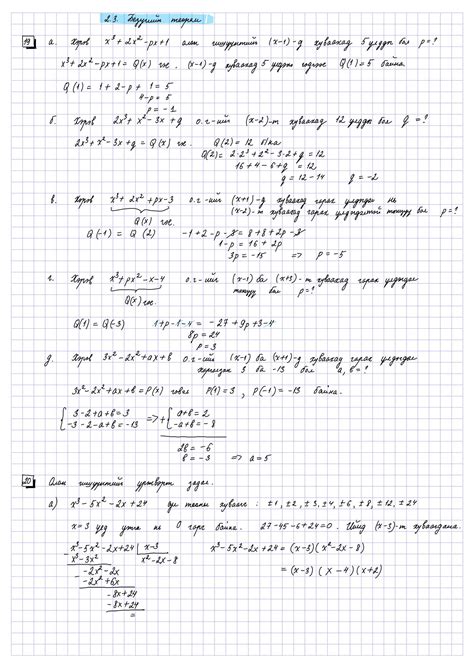 2.3. Безугийн теорем
19 а. Хэрэв x³ + 2x² - px + 1 олон гишүүнтийг (x-1)-д хуваахад 5 үлддэг бол p = ?
x³ + 2x² - px + 1 = Q(x) гэе. (x-1)-д хуваахад 5 үлдэнэ гэдгээс Q(1) = 5 байна.
Q(1) = 1 + 2 - p + 1 = 5
4 - p = 5
p = -1
б. Хэрэв 2x³ + x² - 3x + q о.г-ийг (x-2)-т хуваахад 12 үлддэг бол q = ?
2x³ + x² - 3x + q = Q(x) гэе. Q(2) = 12 байна
Q(2) = 2·2³ + 2² - 3·2 + q = 12
16 + 4 - 6 + q = 12
q = 12 - 14 q = -2
в. Хэрэв x³ + 2x² + px - 3 о.г-ийг (x+1)-д хуваахад гарах үлдэгдэл нь
(x-2)-т хуваахад гарах үлдэгдэлтэй тэнцүү бол p = ?
Q(x) гэе.
Q(-1) = Q(2) -1 + 2 - p - 3 = 8 + 8 + 2p - 3
1 - p = 16 + 2p
3p = -15 => p = -5
г. Хэрэв x³ + px² - x - 4 о.г-ийг (x-1) ба (x+3)-т хуваахад гарах үлдэгдэл
тэнцүү бол p = ?
Q(x) гэе.
Q(1) = Q(-3) 1 + p - 1 - 4 = -27 + 9p + 3 - 4
8p = 24
p = 3
д. Хэрэв 3x³ - 2x² + ax + b о.г-ийг (x-1) ба (x+1)-д хуваахад гарах үлдэгдэл
харгалзан 3 ба -13 бол a, b = ?
3x³ - 2x² + ax + b = P(x) гэвэл P(1) = 3, P(-1) = -13 байна.
3 - 2 + a + b = 3 => + a + b = 2
-3 - 2 - a + b = -13 -a + b = -8
2b = -6
b = -3 => a = 5
20 Олон гишүүнтийг үржвэрт задал.
а) x³ - 5x² - 2x + 24 хуваагч: ±1, ±2, ±3, ±4, ±6, ±8, ±12, ±24
x = 3 үед утга нь 0 гарч байна. 27 - 45 - 6 + 24 = 0. Иймд (x-3)-т хуваагдана.
x³ - 5x² - 2x + 24 | x - 3 x³ - 5x² - 2x + 24 = (x-3)(x² - 2x - 8)
x³ - 3x² x² - 2x - 8
-2x² - 2x = (x-3)(x-4)(x+2)
-2x² + 6x
-8x + 24
-8x + 24
=